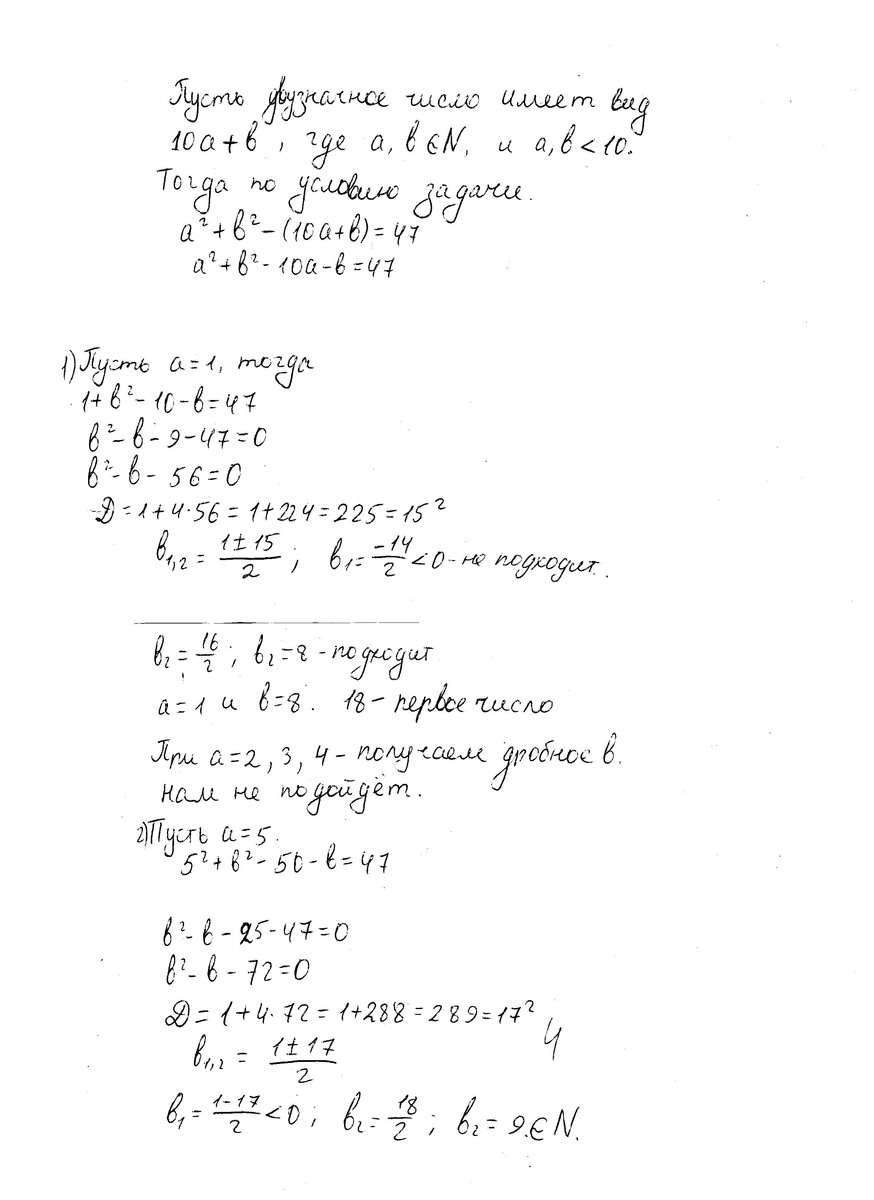 Пусть двузначное число имеет вид
10a+b, где a, b ∈ N, и a, b < 10.
Тогда по условию задачи.
a²+b²-(10a+b)=47
a²+b²-10a-b=47
1) Пусть a=1, тогда
1+b²-10-b=47
b²-b-9-47=0
b²-b-56=0
D=1+4·56=1+224=225=15²
b₁,₂ = (1±15)/2; b₁=-14/2<0-не подходит.
b₂=16/2; b₂=8-подходит
a=1 и b=8. 18-первое число
При a=2, 3, 4-получаем дробное b.
нам не подойдёт.
2) Пусть a=5.
5²+b²-50-b=47
b²-b-25-47=0
b²-b-72=0
D=1+4·72=1+288=289=17²
4
b₁,₂ = (1±17)/2
b₁=(1-17)/2<0; b₂=18/2; b₂=9.∈N.